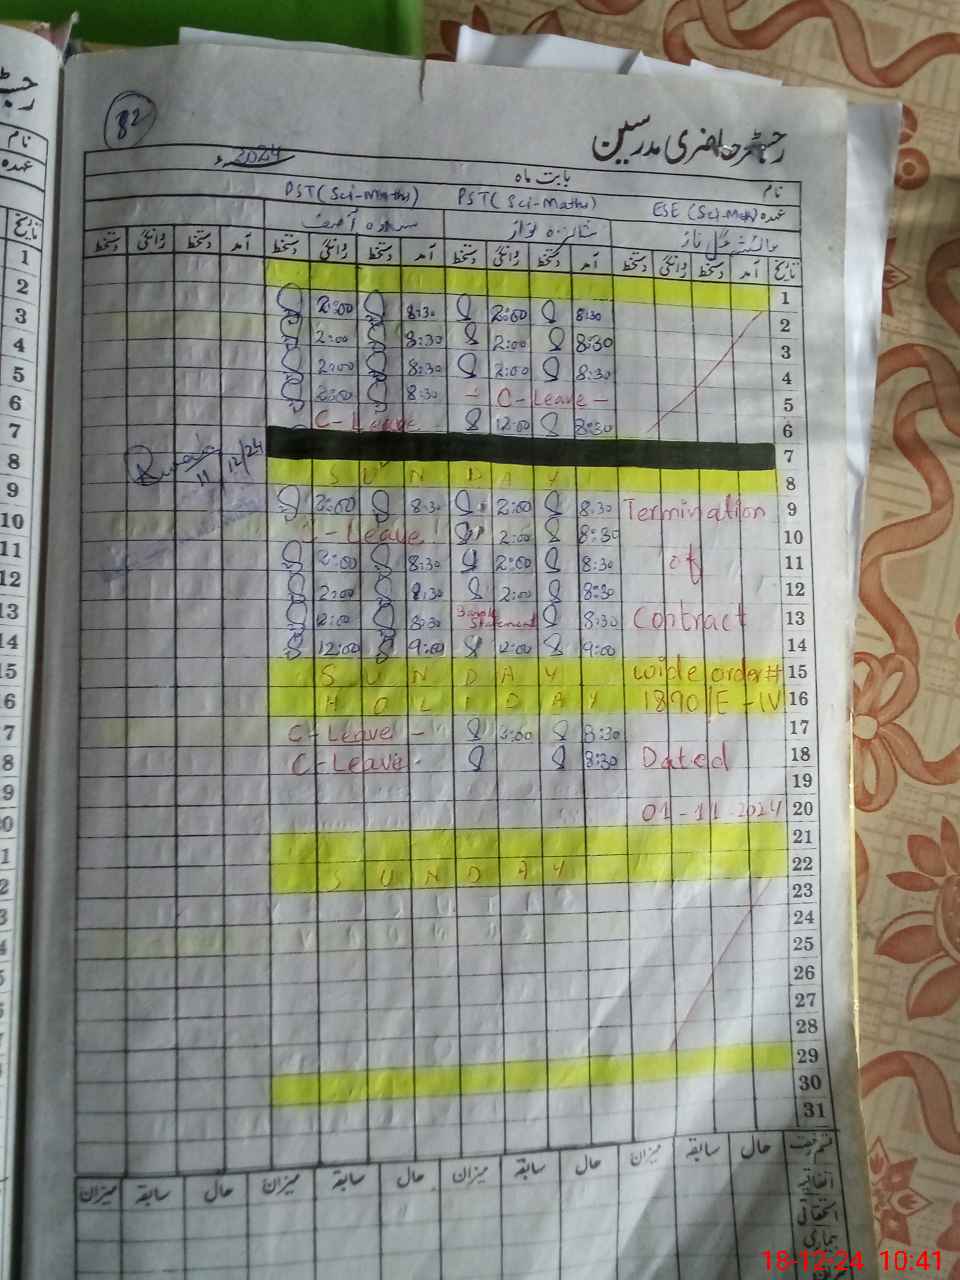 82
رجسٹر حاضری مدرسین
2024ء
بابت ماہ
نام
PST (Sci-Maths) PST (Sci-Maths) ESE (Sci-Math) عہدہ
تاریخ آمد دستخط روانگی دستخط آمد دستخط روانگی دستخط آمد دستخط روانگی دستخط آمد دستخط روانگی دستخط
1
2:00 8:30 2:00 8:30 2
2:00 8:30 2:00 8:30 3
2:00 8:30 2:00 8:30 4
2:00 8:30 - C-Leave - 5
C-Leave 12:00 8:30 6
7
11/12/24
SUNDAY 8
2:00 8:30 2:00 8:30 Termination 9
C-Leave 2:00 8:30 10
2:00 8:30 2:00 8:30 of 11
2:00 8:30 2:00 8:30 12
2:00 8:30 Statement 8:30 Contract 13
12:00 9:00 12:00 9:00 14
SUNDAY wide order# 15
HOLIDAY 1890/E-IV 16
C-Leave - 2:00 8:30 17
C-Leave 8:30 Dated 18
19
01-11-2024 20
21
SUNDAY 22
23
24
25
26
27
28
29
30
31
قسم رخصت حال سابقہ میزان حال سابقہ میزان حال سابقہ میزان حال سابقہ میزان
اتفاقیہ
استحقاقی
بیماری
18-12-24 10:41